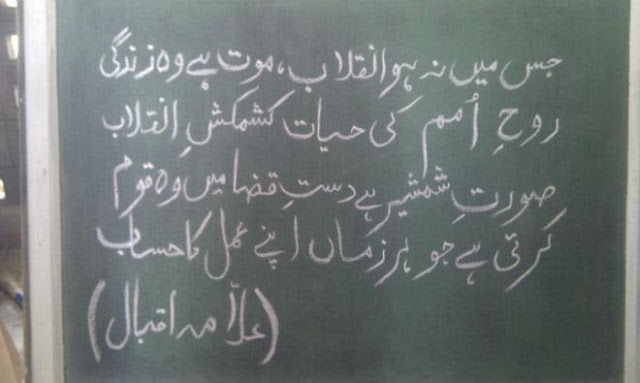 جس میں نہ ہو انقلاب، موت ہے وہ زندگی
روحِ اُمم کی حیات کشمکشِ انقلاب
صورتِ شمشیر ہے دستِ قضا میں وہ قوم
کرتی ہے جو ہر زماں اپنے عمل کا حساب
(علّامہ اقبال)